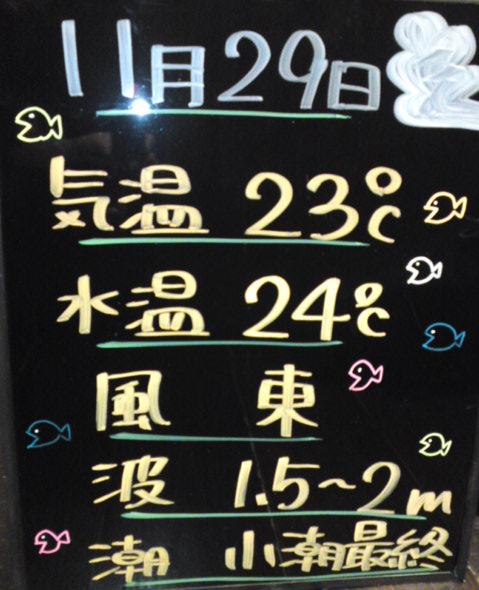 11月29日
気温 23℃
水温 24℃
風 東
波 1.5~2m
潮 小潮最終